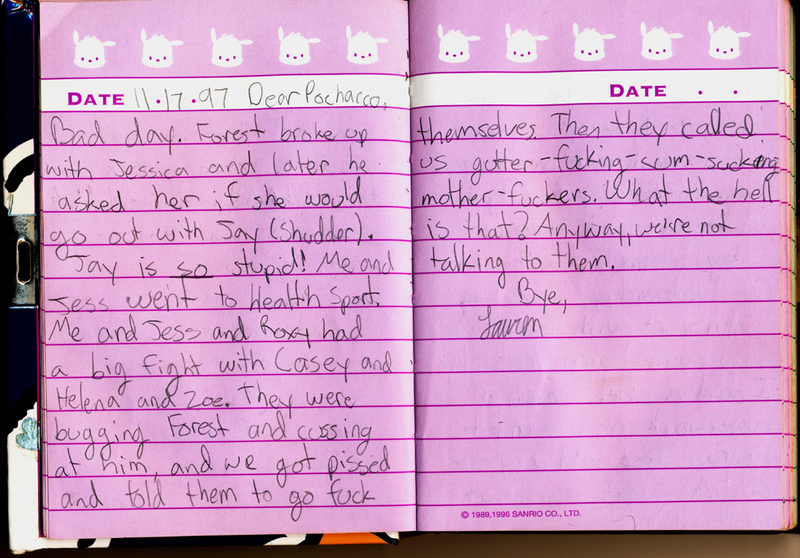 DATE 11.17.97 Dear Pochacco,
Bad day. Forest broke up
with Jessica and later he
asked her if she would
go out with Jay (Shudder).
Jay is so stupid! Me and
Jess went to Health Sport.
Me and Jess and Roxy had
a big fight with Casey and
Helena and Zoe. They were
bugging Forest and cussing
at him, and we got pissed
and told them to go fuck
DATE . .
themselves. Then they called
us gutter-fucking-cum-sucking
mother-fuckers. What the hell
is that? Anyway, we're not
talking to them.
Bye,
Lauren
© 1989,1996 SANRIO CO., LTD.